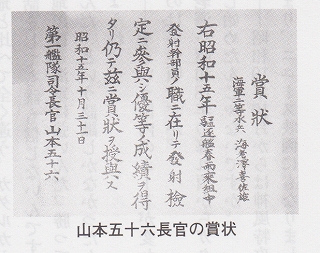 賞狀
海軍二等水兵 海老澤喜佐雄
右昭和十五年驅逐艦春雨乘組中
發射幹部員ノ職ニ在リテ發射檢
定ニ參與シ優等ノ成績ヲ得
タリ仍テ玆ニ賞狀ヲ授與ス
昭和十五年十月三十一日
第一艦隊司令長官山本五十六
山本五十六長官の賞状